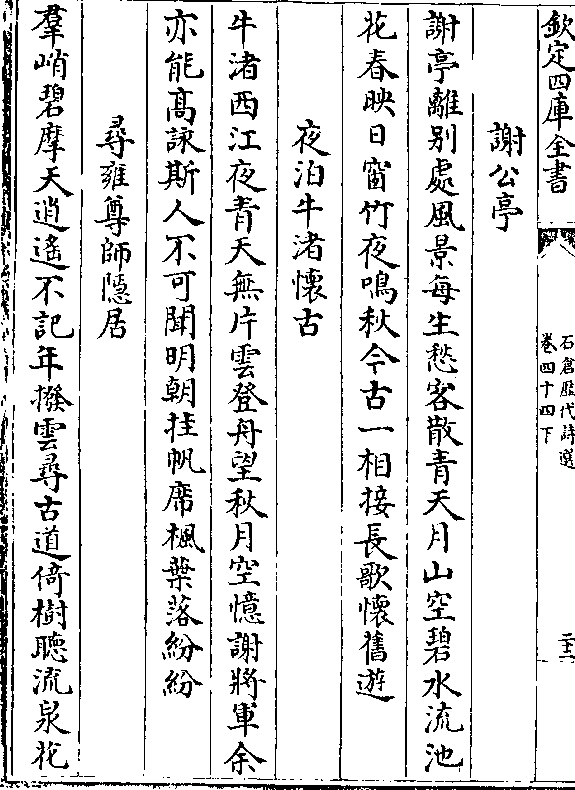 欽定四庫全書
石倉歷代詩選
卷四十四下
二十二
謝公亭
謝亭離别處風景每生愁客散青天月山空碧水流池
花春映日窗竹夜鳴秋今古一相接長歌懷舊遊
夜泊牛渚懷古
牛渚西江夜青天無片雲登舟望秋月空憶謝將軍余
亦能高詠斯人不可聞明朝挂帆席楓葉落紛紛
尋雍尊師隱居
羣峭碧摩天逍遙不記年撥雲尋古道倚樹聽流泉花